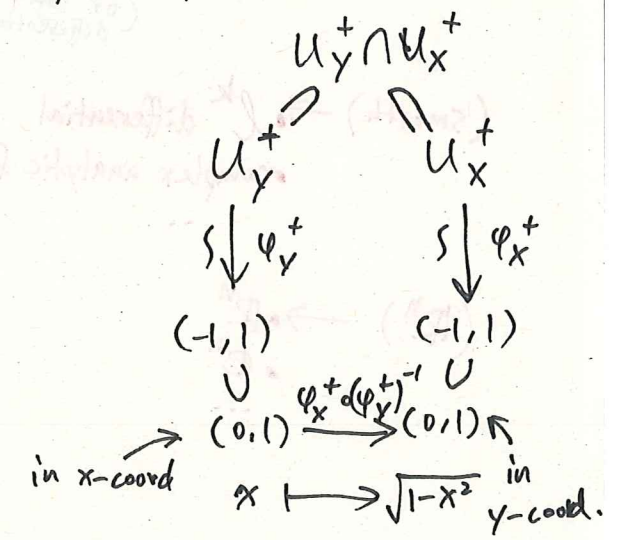 U_y^+ ∩ U_x^+
U_y^+ U_x^+
∫ ↓ φ_y^+ ∫ ↓ φ_x^+
(-1, 1) (-1, 1)
∪ φ_x^+ ∘ (φ_y^+)^{-1} ∪
(0, 1) → (0, 1)
in x-coord
x ↦ √(1-x²)
in
y-coord.